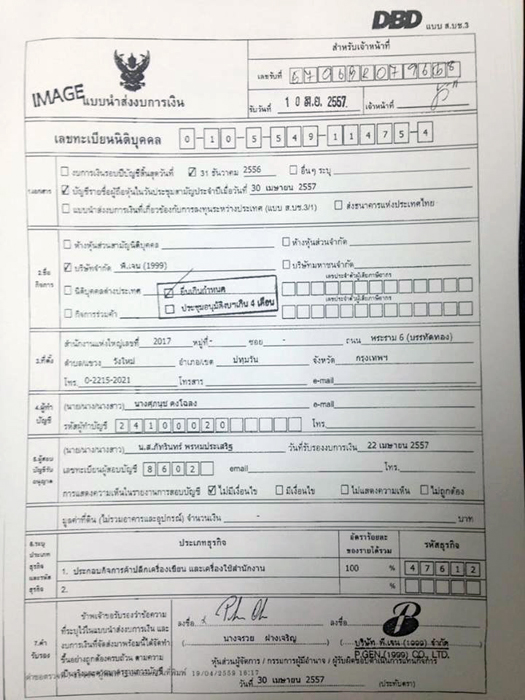 DBD แบบ ส.บช.3
สำหรับเจ้าหน้าที่
IMAGE
แบบนำส่งงบการเงิน
เลขรับที่
รับวันที่ 10 มิ.ย. 2557 เจ้าหน้าที่
เลขทะเบียนนิติบุคคล 0-10-5-549-11475-4
1.เอกสาร
งบการเงินรอบปีบัญชีสิ้นสุดวันที่ 31 ธันวาคม 2556 อื่นๆ ระบุ
บัญชีรายชื่อผู้ถือหุ้นในวันประชุมสามัญประจำปีเมื่อวันที่ 30 เมษายน 2557
แบบนำส่งงบการเงินที่เกี่ยวข้องกับการลงทุนระหว่างประเทศ (แบบ ส.บช.3/1) ส่งธนาคารแห่งประเทศไทย
2.ชื่อกิจการ
ห้างหุ้นส่วนสามัญนิติบุคคล ห้างหุ้นส่วนจำกัด
บริษัทจำกัด พี.เจน (1999) บริษัทมหาชนจำกัด
นิติบุคคลต่างประเทศ เลขประจำตัวผู้เสียภาษีอากร
ยื่นเกินกำหนด
ประชุมอนุมัติงบฯเกิน 4 เดือน
กิจการร่วมค้า เลขประจำตัวผู้เสียภาษีอากร
3.ที่ตั้ง
สำนักงานแห่งใหญ่เลขที่ 2017 หมู่ที่ - ซอย - ถนน พระราม 6 (บรรทัดทอง)
ตำบล/แขวง วังใหม่ อำเภอ/เขต ปทุมวัน จังหวัด กรุงเทพฯ
โทร. 0-2215-2021 โทรสาร e-mail
4.ผู้ทำบัญชี
(นาย/นาง/นางสาว) e-mail
รหัสผู้ทำบัญชี 24100020 โทร.
5.ผู้สอบบัญชีรับอนุญาต
(นาย/นาง/นางสาว) น.ส.ภัทรินทร์ พรหมประเสริฐ วันที่รับรองงบการเงิน 22 เมษายน 2557
เลขทะเบียนผู้สอบบัญชี 8602 email โทร.
การแสดงความเห็นในรายงานการสอบบัญชี ไม่มีเงื่อนไข มีเงื่อนไข ไม่แสดงความเห็น ไม่ถูกต้อง
มูลค่าที่ดิน (ไม่รวมอาคารและอุปกรณ์) จำนวนเงิน - บาท
6.ระบุประเภทธุรกิจและรหัสธุรกิจ
ประเภทธุรกิจ อัตราร้อยละของรายได้รวม รหัสธุรกิจ
1. ประกอบกิจการค้าปลีกเครื่องเขียน และเครื่องใช้สำนักงาน 100 % 47612
2. %
7.คำรับรอง
ข้าพเจ้าขอรับรองว่าข้อความ
ที่ระบุไว้ในแบบนำส่งงบการเงิน และ
งบการเงินที่จัดส่งมาพร้อมนี้ได้จัดทำ
ขึ้นอย่างถูกต้องครบถ้วน ตามความ
ลงชื่อ ลงชื่อ
นางจรวย ฝางเจริญ
บริษัท พี.เจน (1999) จำกัด
P.GEN.(1999) CO., LTD.
19/04/2559 16:17
วันที่ 30 เมษายน 2557 (ประทับตรา)